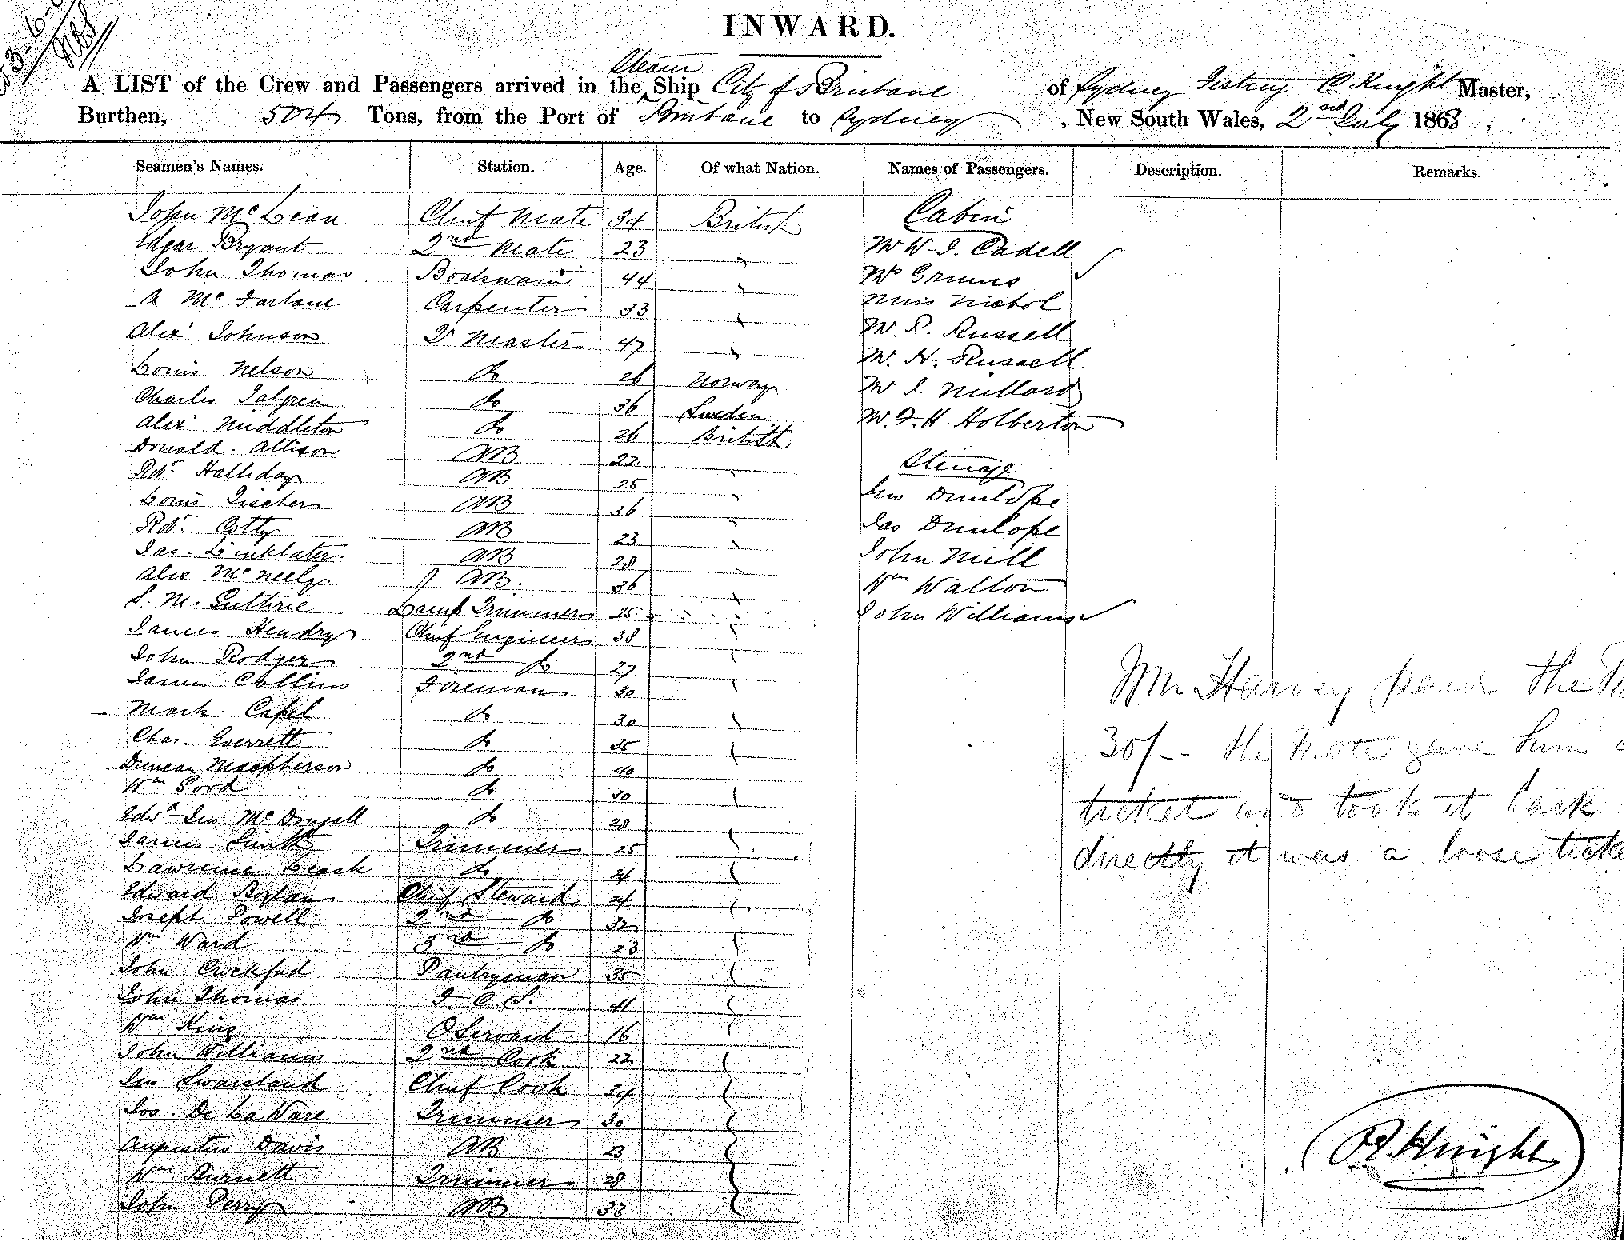 INWARD.
A LIST of the Crew and Passengers arrived in the Steam Ship City of Brisbane of Sydney Knight Master,
Burthen, 504 Tons, from the Port of Brisbane to Sydney, New South Wales, 2nd July 1863.
Seamen's Names. Station. Age. Of what Nation. Names of Passengers. Description. Remarks.
John McLean Chief Mate 34 British Cabin
Edgar Bryant 2nd Mate 23 " Mr W. J. Cadell
John Thomas Boatswain 44 " Mr
A McFarlane Carpenter 33 " Miss Nichol
Alex Johnson Qr Master 47 " Mr Russell
Louis Nelson Do 26 Norway Mr H. Russell
Charles Do 36 Sweden Mr J Millard
Alex Middleton Do 26 British Mr F. H Holberton
Donald Allison AB 22 "
Rdt Halliday AB 25 " Steerage
Louis Fischer AB 36 " Geo Dunlope
Rdt AB 23 " Jas Dunlope
Jas. Linklater AB 28 " John Mill
Alex McNeely AB 26 " Wm Walton
S. M. Guthrie Lamp Trimmer 25 " John Williams
James Hendry Chief Engineer 38 "
John Rodger 2nd Do 27 "
James Collins Fireman 30 "
Mark Capel Do 30 "
Chas Everett Do 35 "
Duncan Macpherson Do 40 "
Wm Good Do 30 "
Edwd Geo McDougall Do 28 "
James Smith Trimmer 25 "
Lawrence Leash Do 24 "
Edward Boylan Chief Steward 24 "
Joseph Powell 2nd Do 32 "
Wm Ward 3rd Do 23 "
John Crockford Pantryman 35 "
John Thomas F C S. 41 "
Wm King O Servant 16 "
John Williams 2nd Cook 22 "
Geo Swanland Chief Cook 24 "
Jos. De La Ware Trimmer 30 "
Augustus Davis AB 23 "
Wm Burnett Trimmer 28 "
John Perry AB 33 "
Wm Harvey paid the
30/- the Mate gave him
ticket and took it back
directly it was a loose
Knight